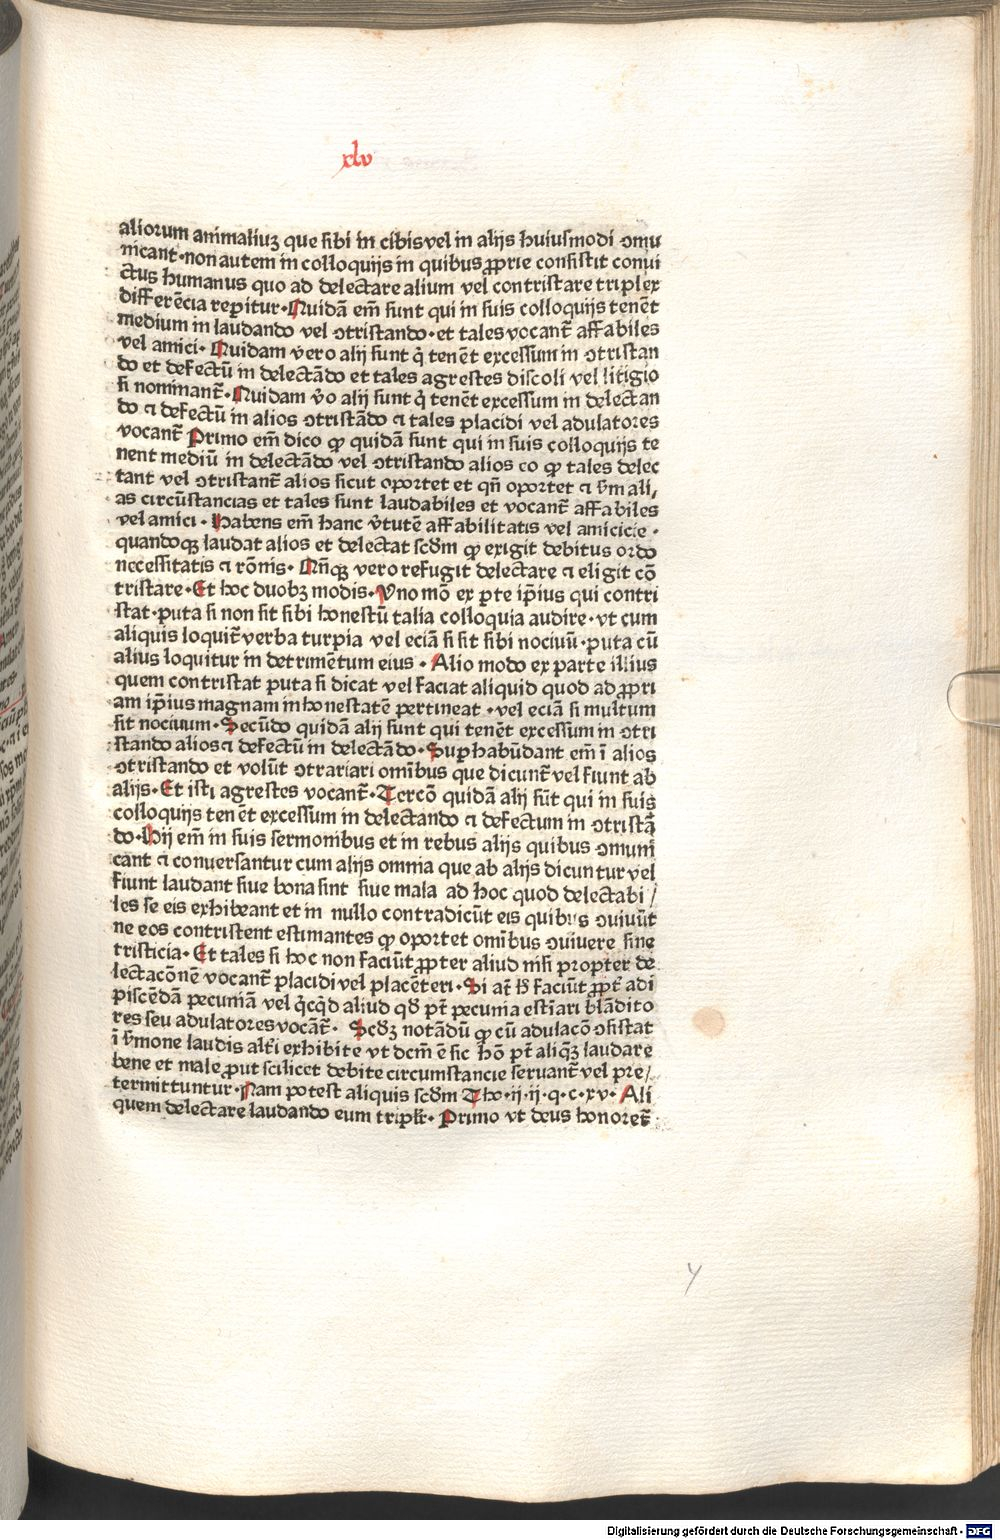 xlv
aliorum animaliuꝫ que sibi in cibis vel in alijs huiusmodi ꝯmu
nicant·non autem in colloquijs in quibus ꝓprie consistit conui
ctus humanus quo ad delectare alium vel contristare triplex
differēcia reperitur·Quidā em̄ sunt qui in suis colloquijs tenēt
medium in laudando vel ꝯtristando·et tales vocant̄ affabiles
vel amici·Quidam vero alij sunt q̇ tenēt excessum in ꝯtristan
do et defectū in delectādo et tales agrestes discoli vel litigio
si nominant̄·Quidam v̄o alij sunt q̇ tenēt excessum in delectan
do ⁊ defectū in alios ꝯtristādo ⁊ tales placidi vel adulatores
vocant̄ Primo em̄ dico ꝙ quidā sunt qui in suis colloquijs te
nent mediū in delectādo vel ꝯtristando alios eo ꝙ tales delec
tant vel ꝯtristant̄ alios sicut oportet et qn̄ oportet ⁊ s̄m ali/
as circūstancias et tales sunt laudabiles et vocant̄ affabiles
vel amici·Habens em̄ hanc v̄tutē affabilitatis vel amicicie·
quandoqꝫ laudat alios et delectat scd̄m ꝙ exigit debitus ordo
necessitatis ⁊ rōnis·Qn̄qꝫ vero refugit delectare ⁊ eligit cō
tristare·Et hoc duobꝫ modis·Uno mō ex ꝑte ip̄ius qui contri
stat·puta si non sit sibi honestū talia colloquia audire·vt cum
aliquis loquit̄ verba turpia vel eciā si sit sibi nociuū·puta cū
alius loquitur in detrimētum eius·Alio modo ex parte illius
quem contristat puta si dicat vel faciat aliquid quod ad ꝓpri
am ip̄ius magnam inhonestatē pertineat·vel eciā si multum
sit nociuum·Secūdo quidā alij sunt qui tenēt excessum in ꝯtri
stando alios ⁊ defectū in delectādo·Suꝑhabūdant em̄ ī alios
ꝯtristando et volūt ꝯtrariari omībus que dicunt̄ vel fiunt ab
alijs·Et isti agrestes vocant̄·Tercō quidā alij sūt qui in suis
colloquijs tenēt excessum in delectando ⁊ defectum in ꝯtristā
do·Hij em̄ in suis sermonibus et in rebus alijs quibus ꝯmuni
cant ⁊ conuersantur cum alijs omnia que ab alijs dicuntur vel
fiunt laudant siue bona sint siue mala ad hoc quod delectabi/
les se eis exhibeant et in nullo contradicūt eis quibus ꝯuiuūt
ne eos contristent estimantes ꝙ oportet omībus ꝯuiuere sine
tristicia·Et tales si hoc non faciūt ꝓpter aliud nisi propter de
lectacōnē vocant̄ placidi vel placēteri·Si at̄ h̄ faciūt ꝓpt̄ adi
piscēdā pecuniā vel q̇cq̇d aliud qd̄ pt̄ pecunia estīari blādito
res seu adulatores vocāt̄· Scd̄ꝫ notādū ꝙ cū adulacō ꝯsistat
ī s̄mone laudis alt̄i exhibite vt dcm̄ ē sic hō pt̄ aliq̄ꝫ laudare
bene et male ꝓut scilicet debite circumstancie seruant̄ vel pre/
termittuntur·Nam potest aliquis scd̄m Tho·ij·ij·q·c·xv·Ali
quem delectare laudando eum tripłr·Primo vt deus honoret̄
y
Digitalisierung gefördert durch die Deutsche Forschungsgemeinschaft - DFG